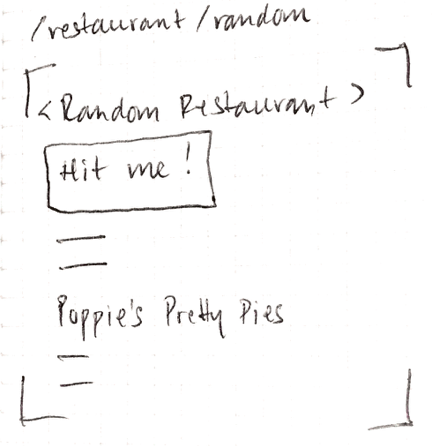 /restaurant/random
<Random Restaurant>
Hit me!
Poppie's Pretty Pies